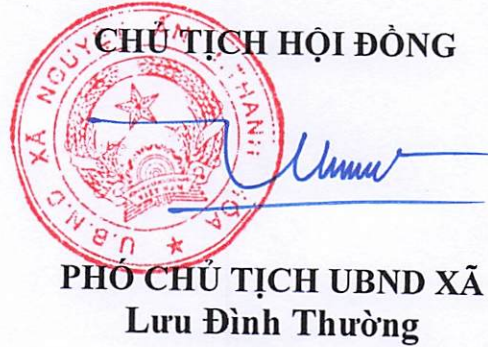 CHỦ TỊCH HỘI ĐỒNG
U.B.N.D XÃ NGUYỆT ẤN T. THANH HÓA
PHÓ CHỦ TỊCH UBND XÃ
Lưu Đình Thường